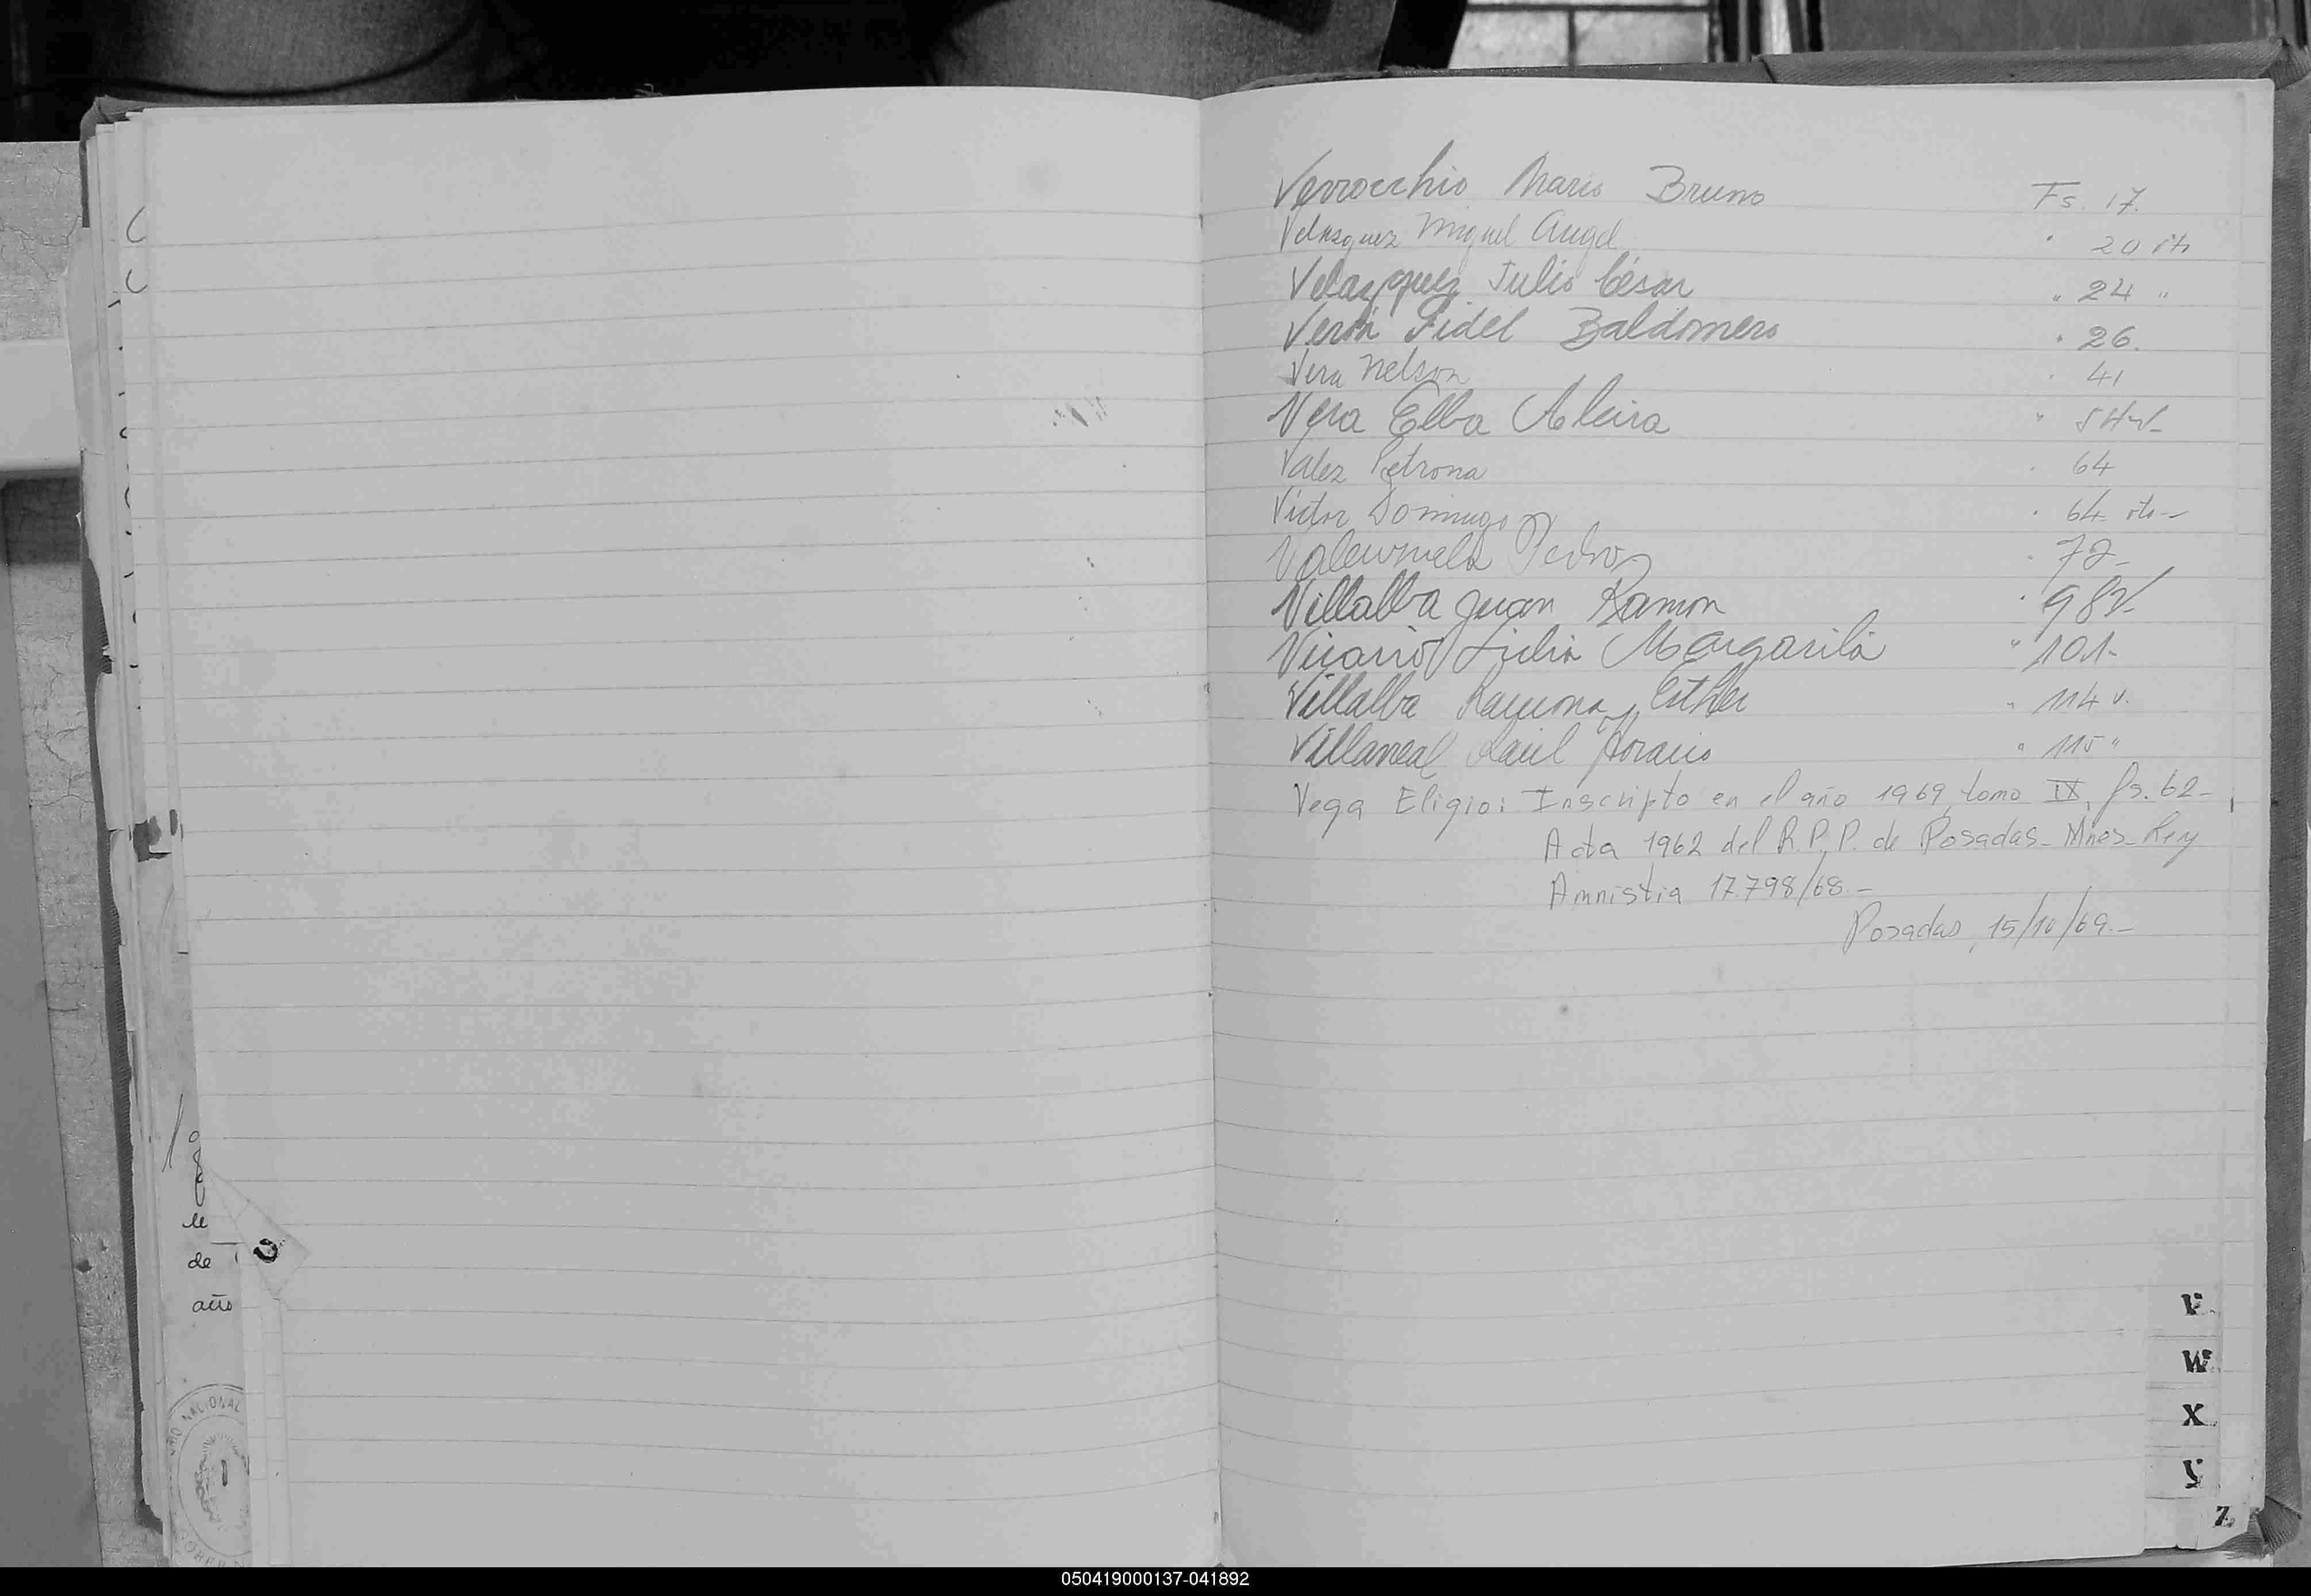 Verrocchio Mario Bruno Fs. 17.
Velasquez Miguel Angel " 20 vta
Velazquez Julio César " 24 "
Verón Fidel Baldomero " 26.
Vera Nelson " 41
Vera Elba Alcira " 54 v-
Valez Petrona " 64
Victor Domingo " 64 vta-
Valenzuela Pedro " 72-
Villalba Juan Ramon " 98 v-
Vicario Lidia Margarita " 101-
Villalba Ramona Esther " 114 v.
Villarreal Raúl Horacio " 115 "
Vega Eligio: Inscripto en el año 1969, tomo IX, fs. 62-,
Acta 1962 del R.P.P. de Posadas- Mnes- Ley
Amnistia 17.798/68.-
Posadas, 15/10/69.-
le
de
año
U
NACIONAL
V
W
X
Y
Z
050419000137-041892